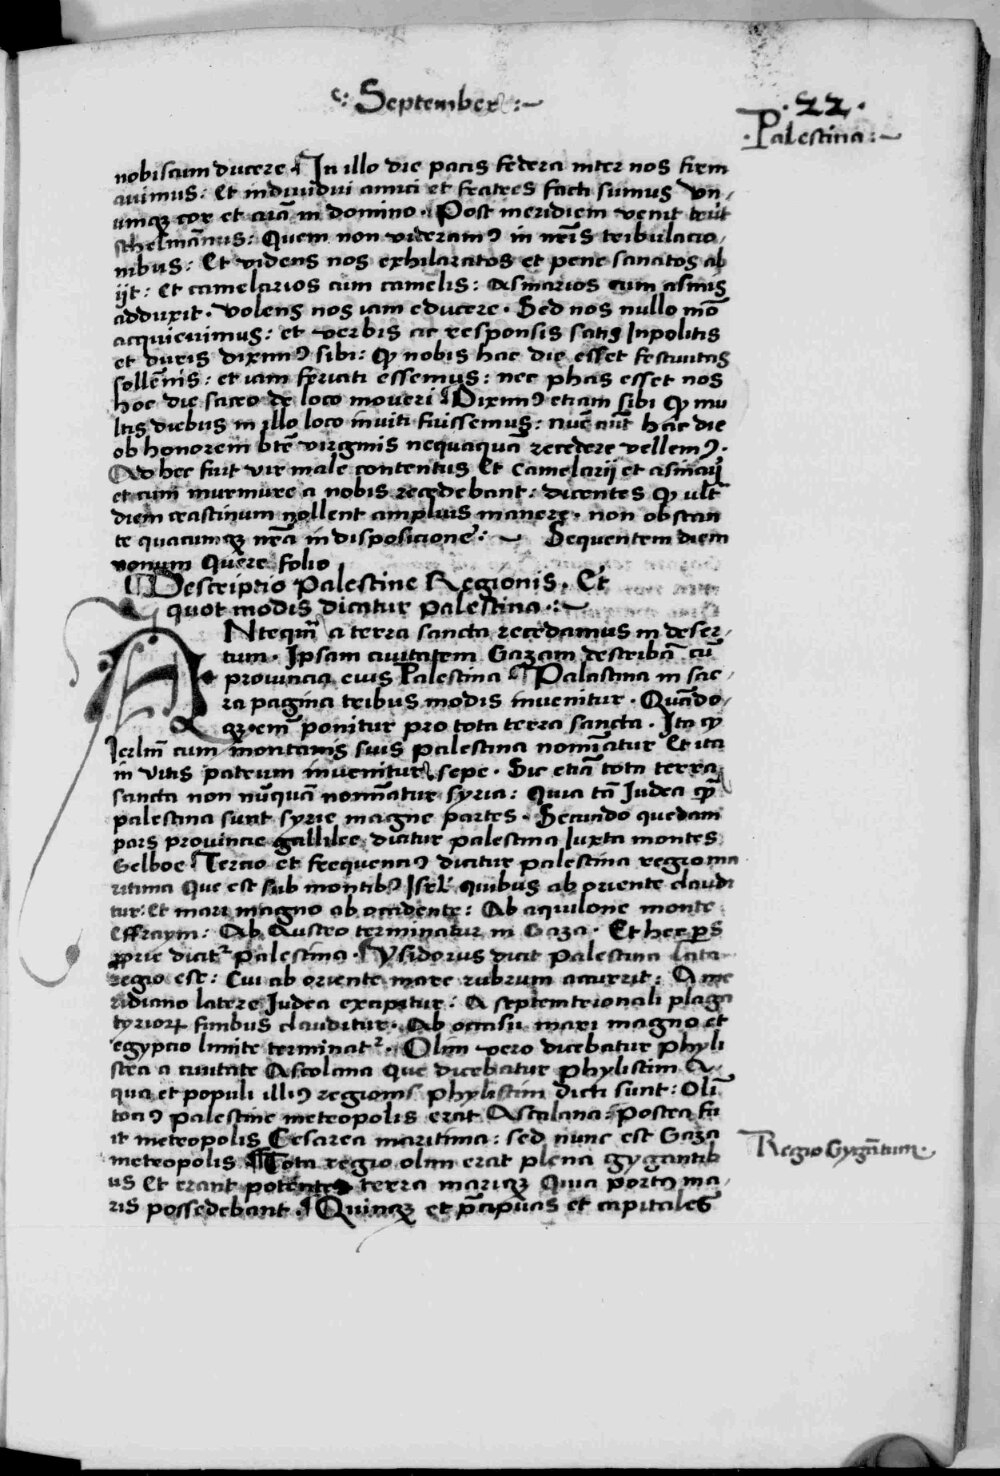 September
.22.
Palestina
nobiscum ducere In illo die pacis federa inter nos firm
avimus: Et individui amici et fratres facti sumus vn
umqꝫ cor et aĩã in domino. Post meridiem venit trut
schelmãnus: Quem non videramꝰ in nr̃is tribulacio
nibus: Et videns nos exhilaratos et pene sanatos ab
ijt: et camelarios cum camelis: asinarios cum asinis
adduxit. volens nos iam educere. Sed nos nullo mõ
acquievimus: et verbis ac responsis satis Inpolitis
et duris diximꝰ sibi: ꝙ nobis hac die esset festivitas
sollẽnis: et iam feriati essemus: nec phas esset nos
hoc die sacro de loco moveri Diximꝰ etiam sibi ꝙ mu
ltis diebus in illo loco inviti fuissemus: nũc aũt hac die
ob honorem btẽ virginis nequaquã recedere vellemꝰ.
Ad hec fuit vir male contentus Et Camelarij et asinarij
et cum murmure a nobis recedebant: dicentes ꝙ vlt̃
diem crastinum nollent amplius manere. non obstan
te quacumqꝫ nr̃a indisposicione: Sequentem diem
nonum Quere folio
Descriptio Palestine Regionis. Et
quot modis dicatur palestina.
ANtequã a terra sancta recedamus in deser
tum. Ipsam civitatem Gazam describã cũ
provincia eius Palestina Palastina in sac
ra pagina tribus modis invenitur. Quãdo
qꝫ em̃ ponitur pro tota terra sancta. Ita ꝙ
Ierlm̃ cum montanis suis palestina nomĩatur Et ita
in vitis patrum invenitur sepe. Sic etiã tota terra
sancta non nũquã nomĩatur syria: Quia tã Iudea ꝙ̃
palestina sunt syrie magne partes. Secundo quedam
pars provincie gallilee dicitur palestina Iuxta montes
Gelboe Tercio et frequenciꝰ dicitur palestina regio ma
ritima Que est sub montibꝰ Isrl̃ quibus ab oriente claudi
tur: Et mari magno ab occidente: Ab aquilone monte
effraym: Ab Austro terminatur in Gaza. Et hec ꝑs
ꝓprie dicit᷑ Palestina. Ysidorus dicit Palestina lata
regio est: Cui ab oriente mare rubrum occurrit: A me
ridiano latere Iudea excipitur: A septemtrionali plaga
tyrioꝝ finibus clauditur. Ab occasu mari magno et
egypcio limite terminat᷑. Olim vero dicebatur Phyli
stea a civitate Ascolana que dicebatur phylistim A
qua et populi illiꝰ regionis phylistim dicti sunt: Olĩ
tociꝰ palestine metropolis erat Ascalana: Postea fu
it metropolis Cesarea maritima: sed nunc est Gaza
metropolis Tota regio olim erat plena gygantib
us Et erant potentes terra mariqꝫ Quia portꝰ ma
ris possedebant. Quinqꝫ et p̃cipuas et capitales
Regio Gygãtum.